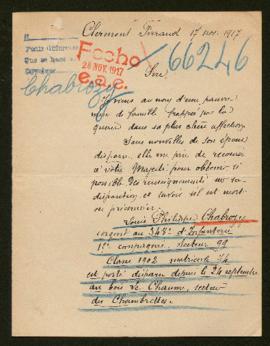 Clermont Ferrand 17 nov. 1917
Fecho
28 NOV. 1917
e.a.e.
66246
Chabrozy
Sire,
Je viens au nom d'une pauvre
mère de famille frappée par la
guerre dans sa plus chère affection.
Sans nouvelles de son époux
disparu, elle me prie de recourir
à votre Majesté pour obtenir si
possible des renseignements sur sa
disparition, et savoir s'il est mort
ou prisonnier.
Louis Philippe Chabrozy
sergent au 343e d'Infanterie
compagnie, Secteur 99
Classe 1902 matricule
est porté disparu depuis le 24 septembre
au bois Le Chaume, secteur
des Chambrettes.